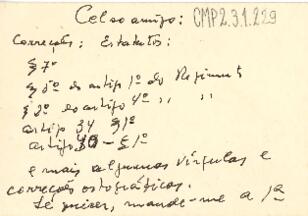 Celso amigo: CMP2.3.1.229
Correcções: Estatutos:
§ 7º
§ 5º do artigo 1º do Regimento
§ 2º do artigo 4º " "
artigo 34 § 1º
artigo 30 - § 1º
e mais algumas vírgulas e
correcções ortográficas.
Se quiser, mande-me a 1ª